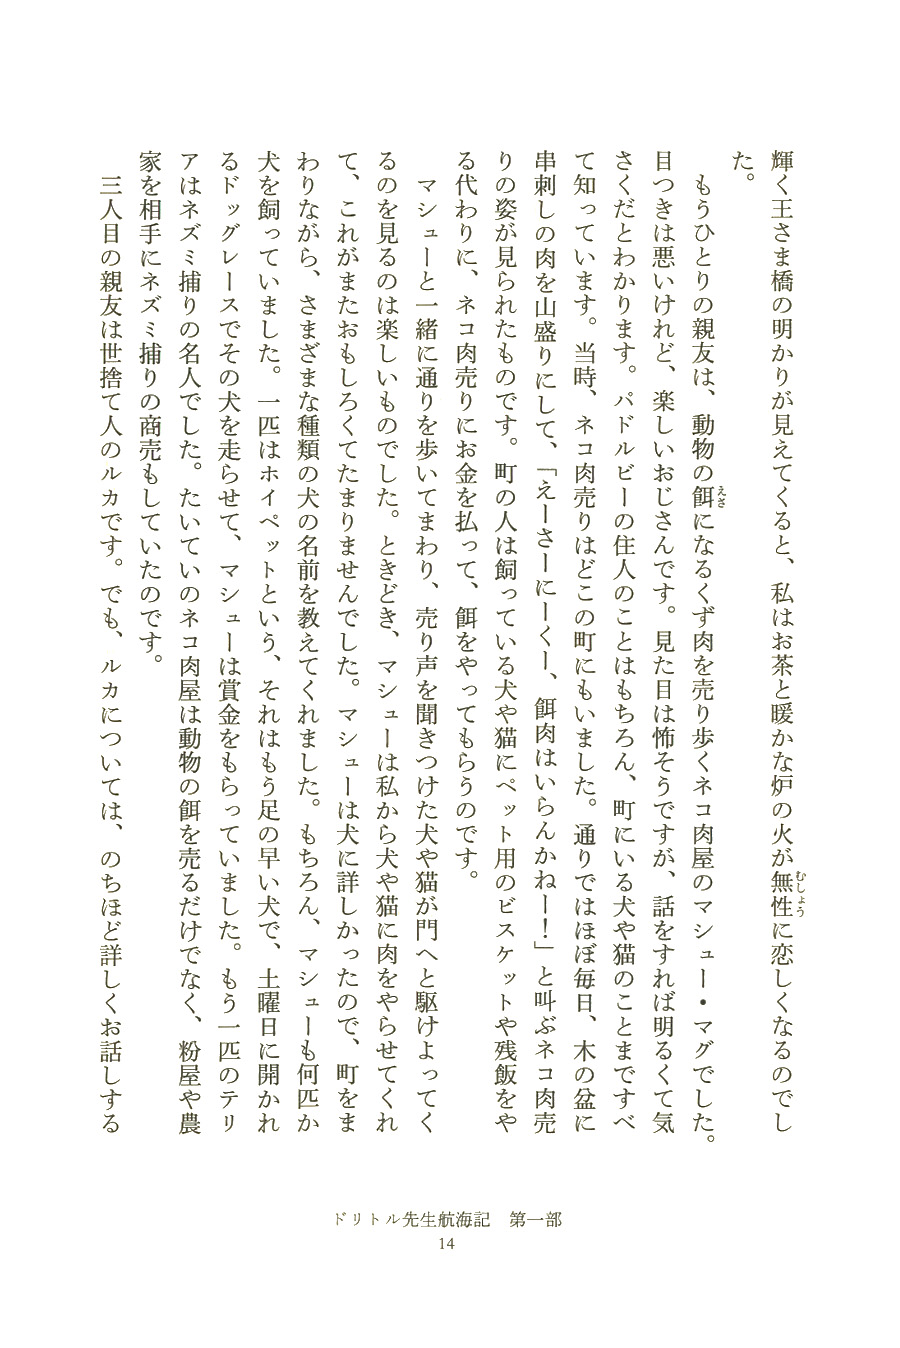 輝く王さま橋の明かりが見えてくると、私はお茶と暖かな炉の火が無性に恋しくなるのでし
むしょう
た。
もうひとりの親友は、動物の餌になるくず肉を売り歩くネコ肉屋のマシュー・マグでした。
えさ
目つきは悪いけれど、楽しいおじさんです。見た目は怖そうですが、話をすれば明るくて気
さくだとわかります。パドルビーの住人のことはもちろん、町にいる犬や猫のことまですべ
て知っています。当時、ネコ肉売りはどこの町にもいました。通りではほぼ毎日、木の盆に
串刺しの肉を山盛りにして、「えーさーにーくー、餌肉はいらんかねー！」と叫ぶネコ肉売
りの姿が見られたものです。町の人は飼っている犬や猫にペット用のビスケットや残飯をや
る代わりに、ネコ肉売りにお金を払って、餌をやってもらうのです。
マシューと一緒に通りを歩いてまわり、売り声を聞きつけた犬や猫が門へと駆けよってく
るのを見るのは楽しいものでした。ときどき、マシューは私から犬や猫に肉をやらせてくれ
て、これがまたおもしろくてたまりませんでした。マシューは犬に詳しかったので、町をま
わりながら、さまざまな種類の犬の名前を教えてくれました。もちろん、マシューも何匹か
犬を飼っていました。一匹はホイペットという、それはもう足の早い犬で、土曜日に開かれ
るドッグレースでその犬を走らせて、マシューは賞金をもらっていました。もう一匹のテリ
アはネズミ捕りの名人でした。たいていのネコ肉屋は動物の餌を売るだけでなく、粉屋や農
家を相手にネズミ捕りの商売もしていたのです。
三人目の親友は世捨て人のルカです。でも、ルカについては、のちほど詳しくお話しする
ドリトル先生航海記　第一部
14